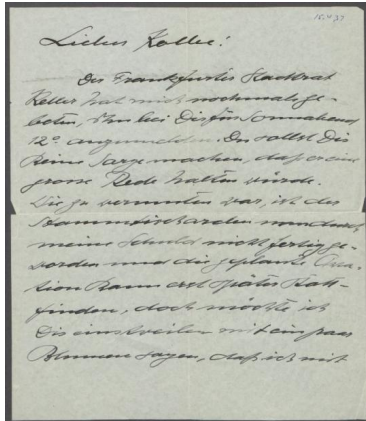 15.4.37
Lieber Kolbe!
Der Frankfurter Stadtrat
Keller hat mich nochmals ge-
beten, ihn bei Dir für Sonnabend
12° anzumelden. Du sollst Dir
keine Sorge machen, daß er eine
grosse Rede halten würde.
Wie zu vermuten war, ist der
meine Schuld nicht fertig ge-
worden und die geplante
tion kann erst später statt-
finden, doch möchte ich
Dir einstweilen mit ein paar
Blumen sagen, daß ich mit